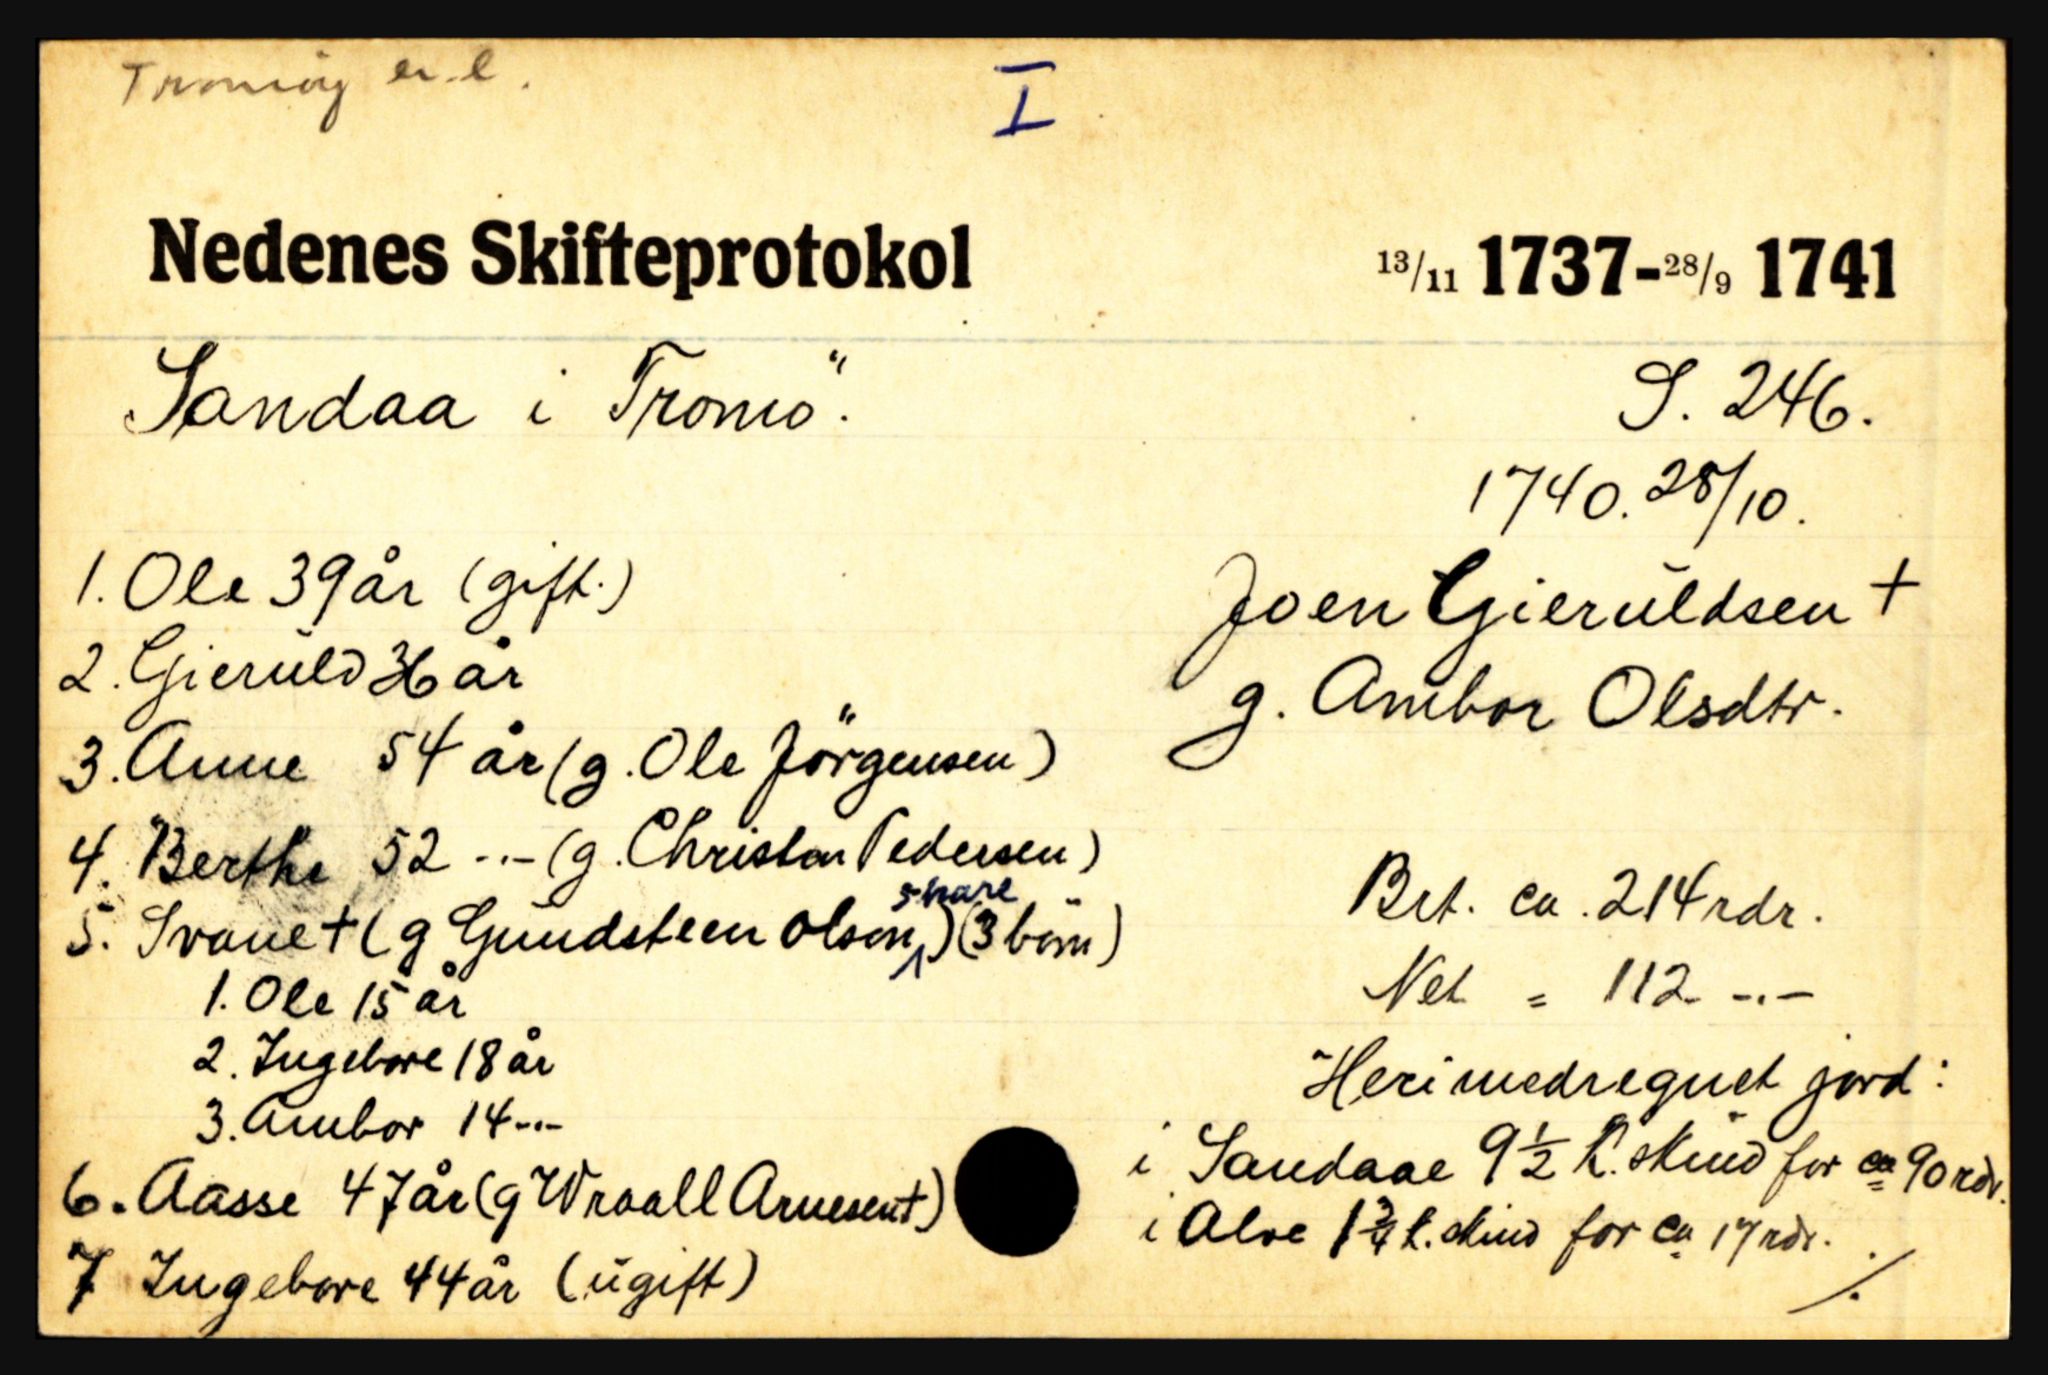 Tromöy
I
Nedenes Skifteprotokol 13/11 1737-28/9 1741
Sandaa i Tromö.
S. 246.
1740. 28/10.
Joen Gierŭldsen +
g. Ambor Olsdtr.
1. Ole 39 år (gift.)
2. Gierŭld 36 år
3. Anne 54 år (g. Ole Jörgensen)
4. Berthe 52 -"- (g. Christen Pedersen)
5. Svane + (g Gŭndsteen Olsen Share) (3 børn)
1. Ole 15 år
2. Ingebore 18 år
3. Ambor 14 -"-
6. Aasse 47 år (g Wraall Arnesen +)
7 Ingebore 44 år (ŭgift)
Brt. ca. 214 rdr.
Net = 112 -"-
Heri medregnet jord:
i Sandaae 9 1/2 k. skind for ca 90 rdr.
i Alve 1 3/4 k. skind for ca 17 rdr.